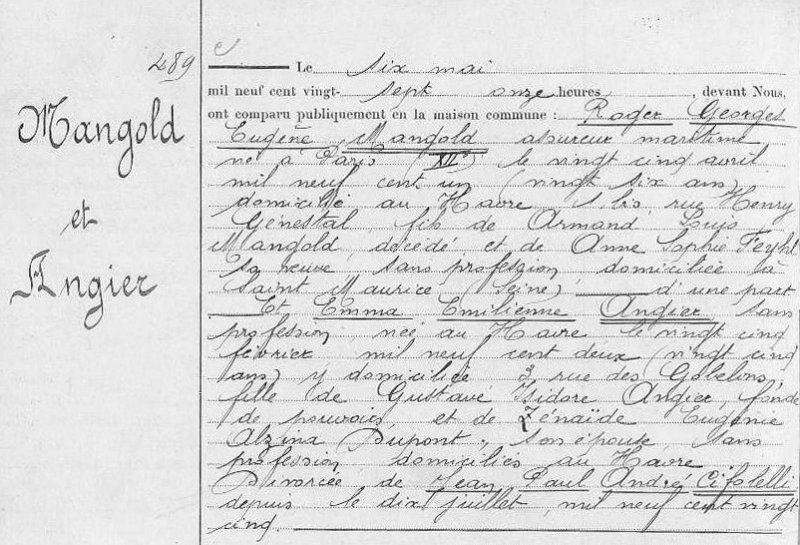 489
Mangold
et
Angier
Le six mai
mil neuf cent vingt-sept onze heures, devant Nous,
ont comparu publiquement en la maison commune : Roger Georges
Eugène Mangold assureur maritime
né à Paris (XIIe) le vingt cinq avril
mil neuf cent un (vingt six ans)
domicilié au Havre 1 bis rue Henry
Génestal, fils de Armand Louis
Mangold, décédé et de Anne Sophie Feyhl
sa veuve sans profession domiciliée à
Saint Maurice (Seine) d'une part
Et Emma Emilienne Angier sans
profession, née au Havre le vingt cinq
février mil neuf cent deux (vingt cinq
ans) y domiciliée 3 rue des Gobelins,
fille de Gustave Isidore Angier, fondé
de pouvoirs, et de Zénaïde Eugénie
Alzina Dupont, son épouse, sans
profession, domiciliés au Havre
Divorcée de Jean Paul André Cifolelli
depuis le dix juillet, mil neuf cent vingt
cinq.